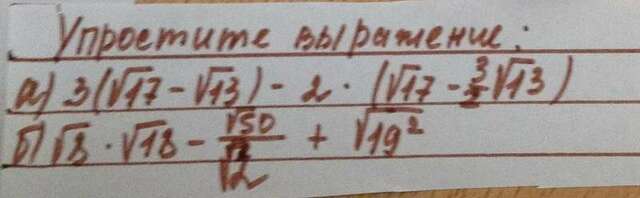 Упростите выражение:
а) 3(√17 - √13) - 2 · (√17 - 3/2 √13)
б) √8 · √18 - √50/√2 + √19²